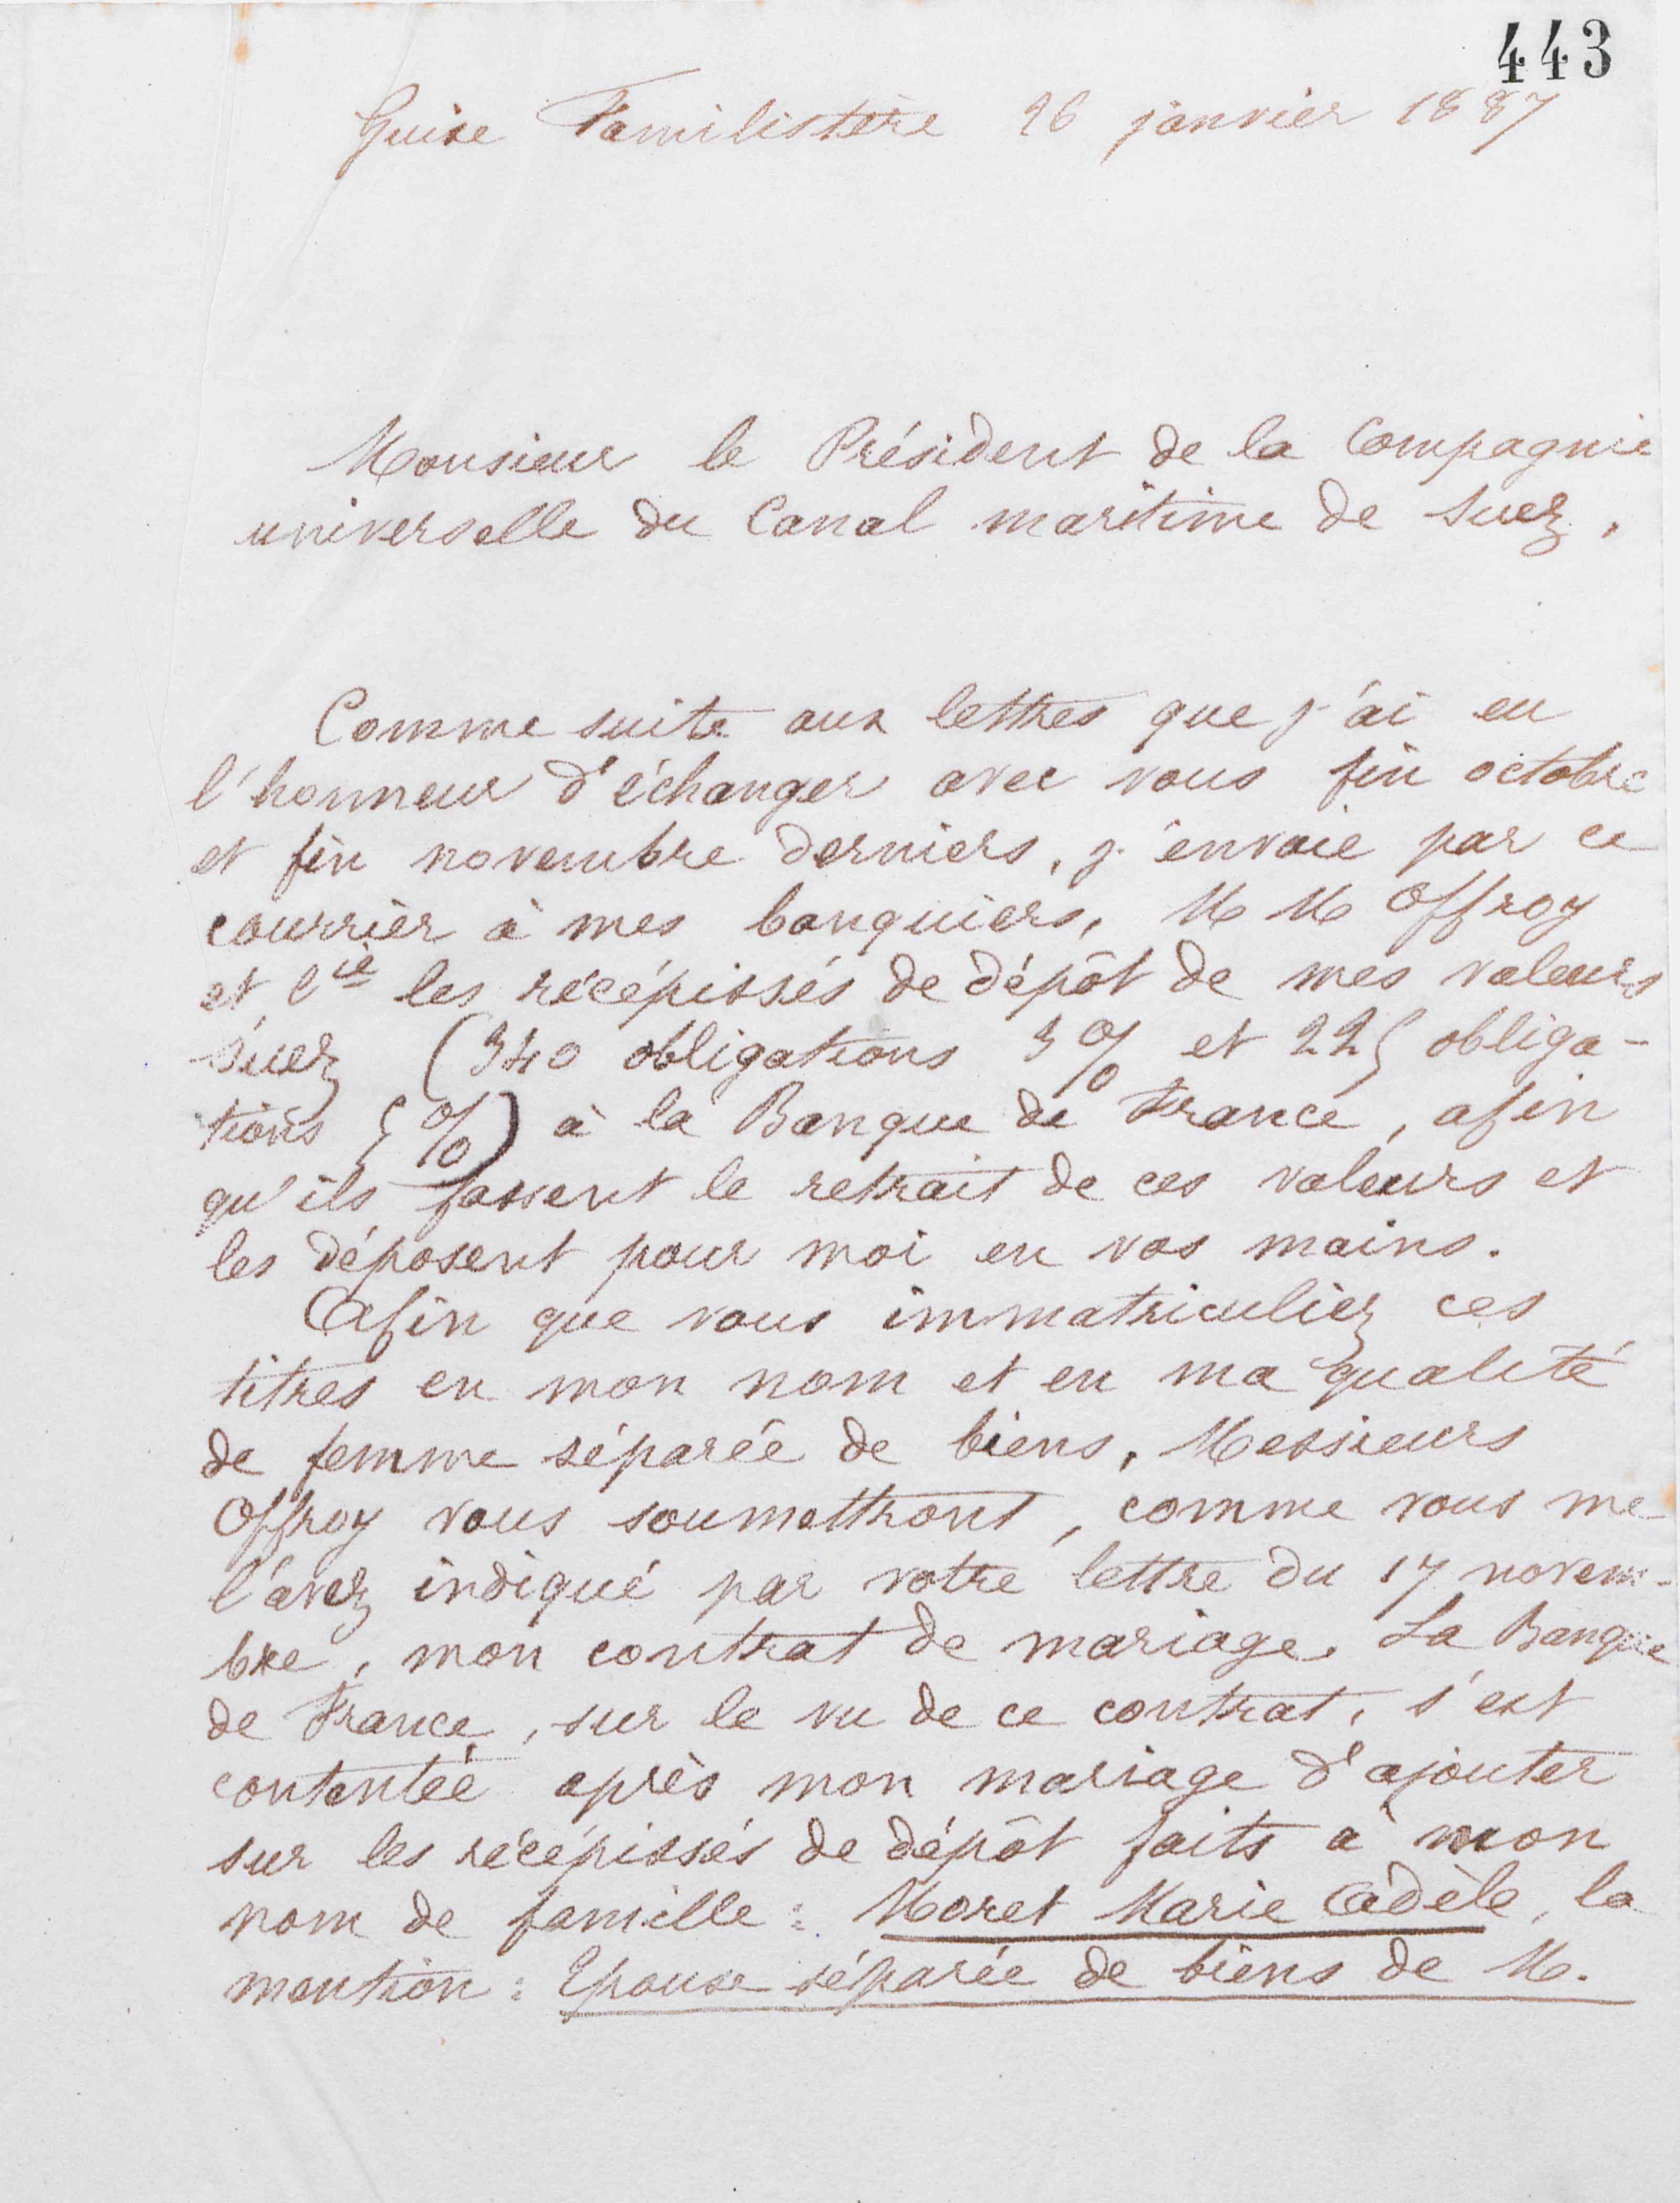 443
Guise Familistère 26 janvier 1887
Monsieur le Président de la Compagnie
universelle du Canal maritime de Suez,
Comme suite aux lettres que j'ai eu
l'honneur d'échanger avec vous fin octobre
et fin novembre derniers, j'envoie par ce
courrier à mes banquiers, MM Offroy
et Cie les récépissés de dépôt de mes valeurs
Suez (340 obligations 3 % et 225 obliga-
tions 5 %) à la Banque de France, afin
qu'ils fassent le retrait de ces valeurs et
les déposent pour moi en vos mains.
Afin que vous immatriculiez ces
titres en mon nom et en ma qualité
de femme séparée de biens, Messieurs
Offroy vous soumettront, comme vous me
l'avez indiqué par votre lettre du 17 novem-
bre, mon contrat de mariage. La Banque
de France, sur le vu de ce contrat, s'est
contentée après mon mariage d'ajouter
sur les récépissés de dépôt faits à mon
nom de famille : Moret Marie Adèle, la
mention : Epouse séparée de biens de M.